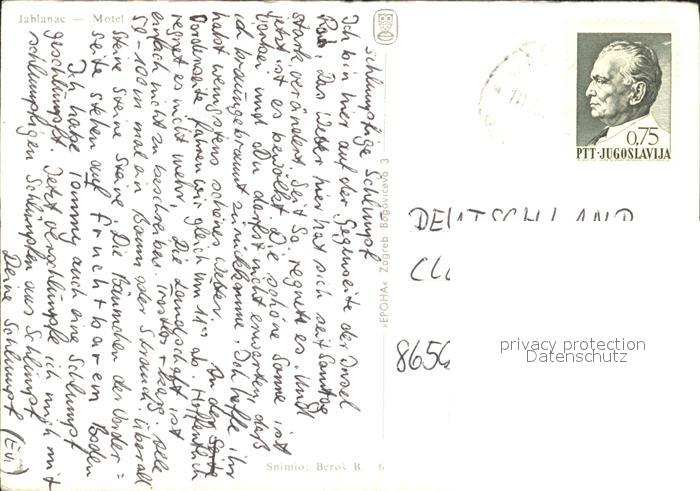 Jablanac — Motel
schlumpfige Schlumpf
Ich bin hier auf der Gegenseite der Insel
Rab. Das Wetter hier hat sich seit Samstag
stark verändert. Seit So regnete es. Und
jetzt ist es bewölkt. Die schöne Sonne ist
vorbei und Du darfst nicht erwarten, daß
ich braungebrannt zurückkomme. Ich hoffe ihr
habt wenigstens schönes Wetter. An der Seite
Vorderseite fahren wir gleich um 11°° ab. Hoffentlich
regnet es nicht mehr. Die Landschaft ist
einfach nicht zu beschreiben. Trostlos + karg, alle
50-100m mal ein Baum oder Strauch, überall
Steine Steine Steine. Die Bäumchen der Vorder=
seite stehen auf fruchtbarem Boden
Ich habe Tommy auch eine Schlumpf
geschlumpft. Jetzt verschlumpfe ich mich mit
schlumpfigen Schlümpfen aus Schlumpf
Deine Schlumpf (Evi)
Snimio: Beroš B.
»EPOHA« Zagreb Bogovićeva 3
0,75
PTT·JUGOSLAVIJA
DEUTSCHLAND
8650
privacy protection
Datenschutz